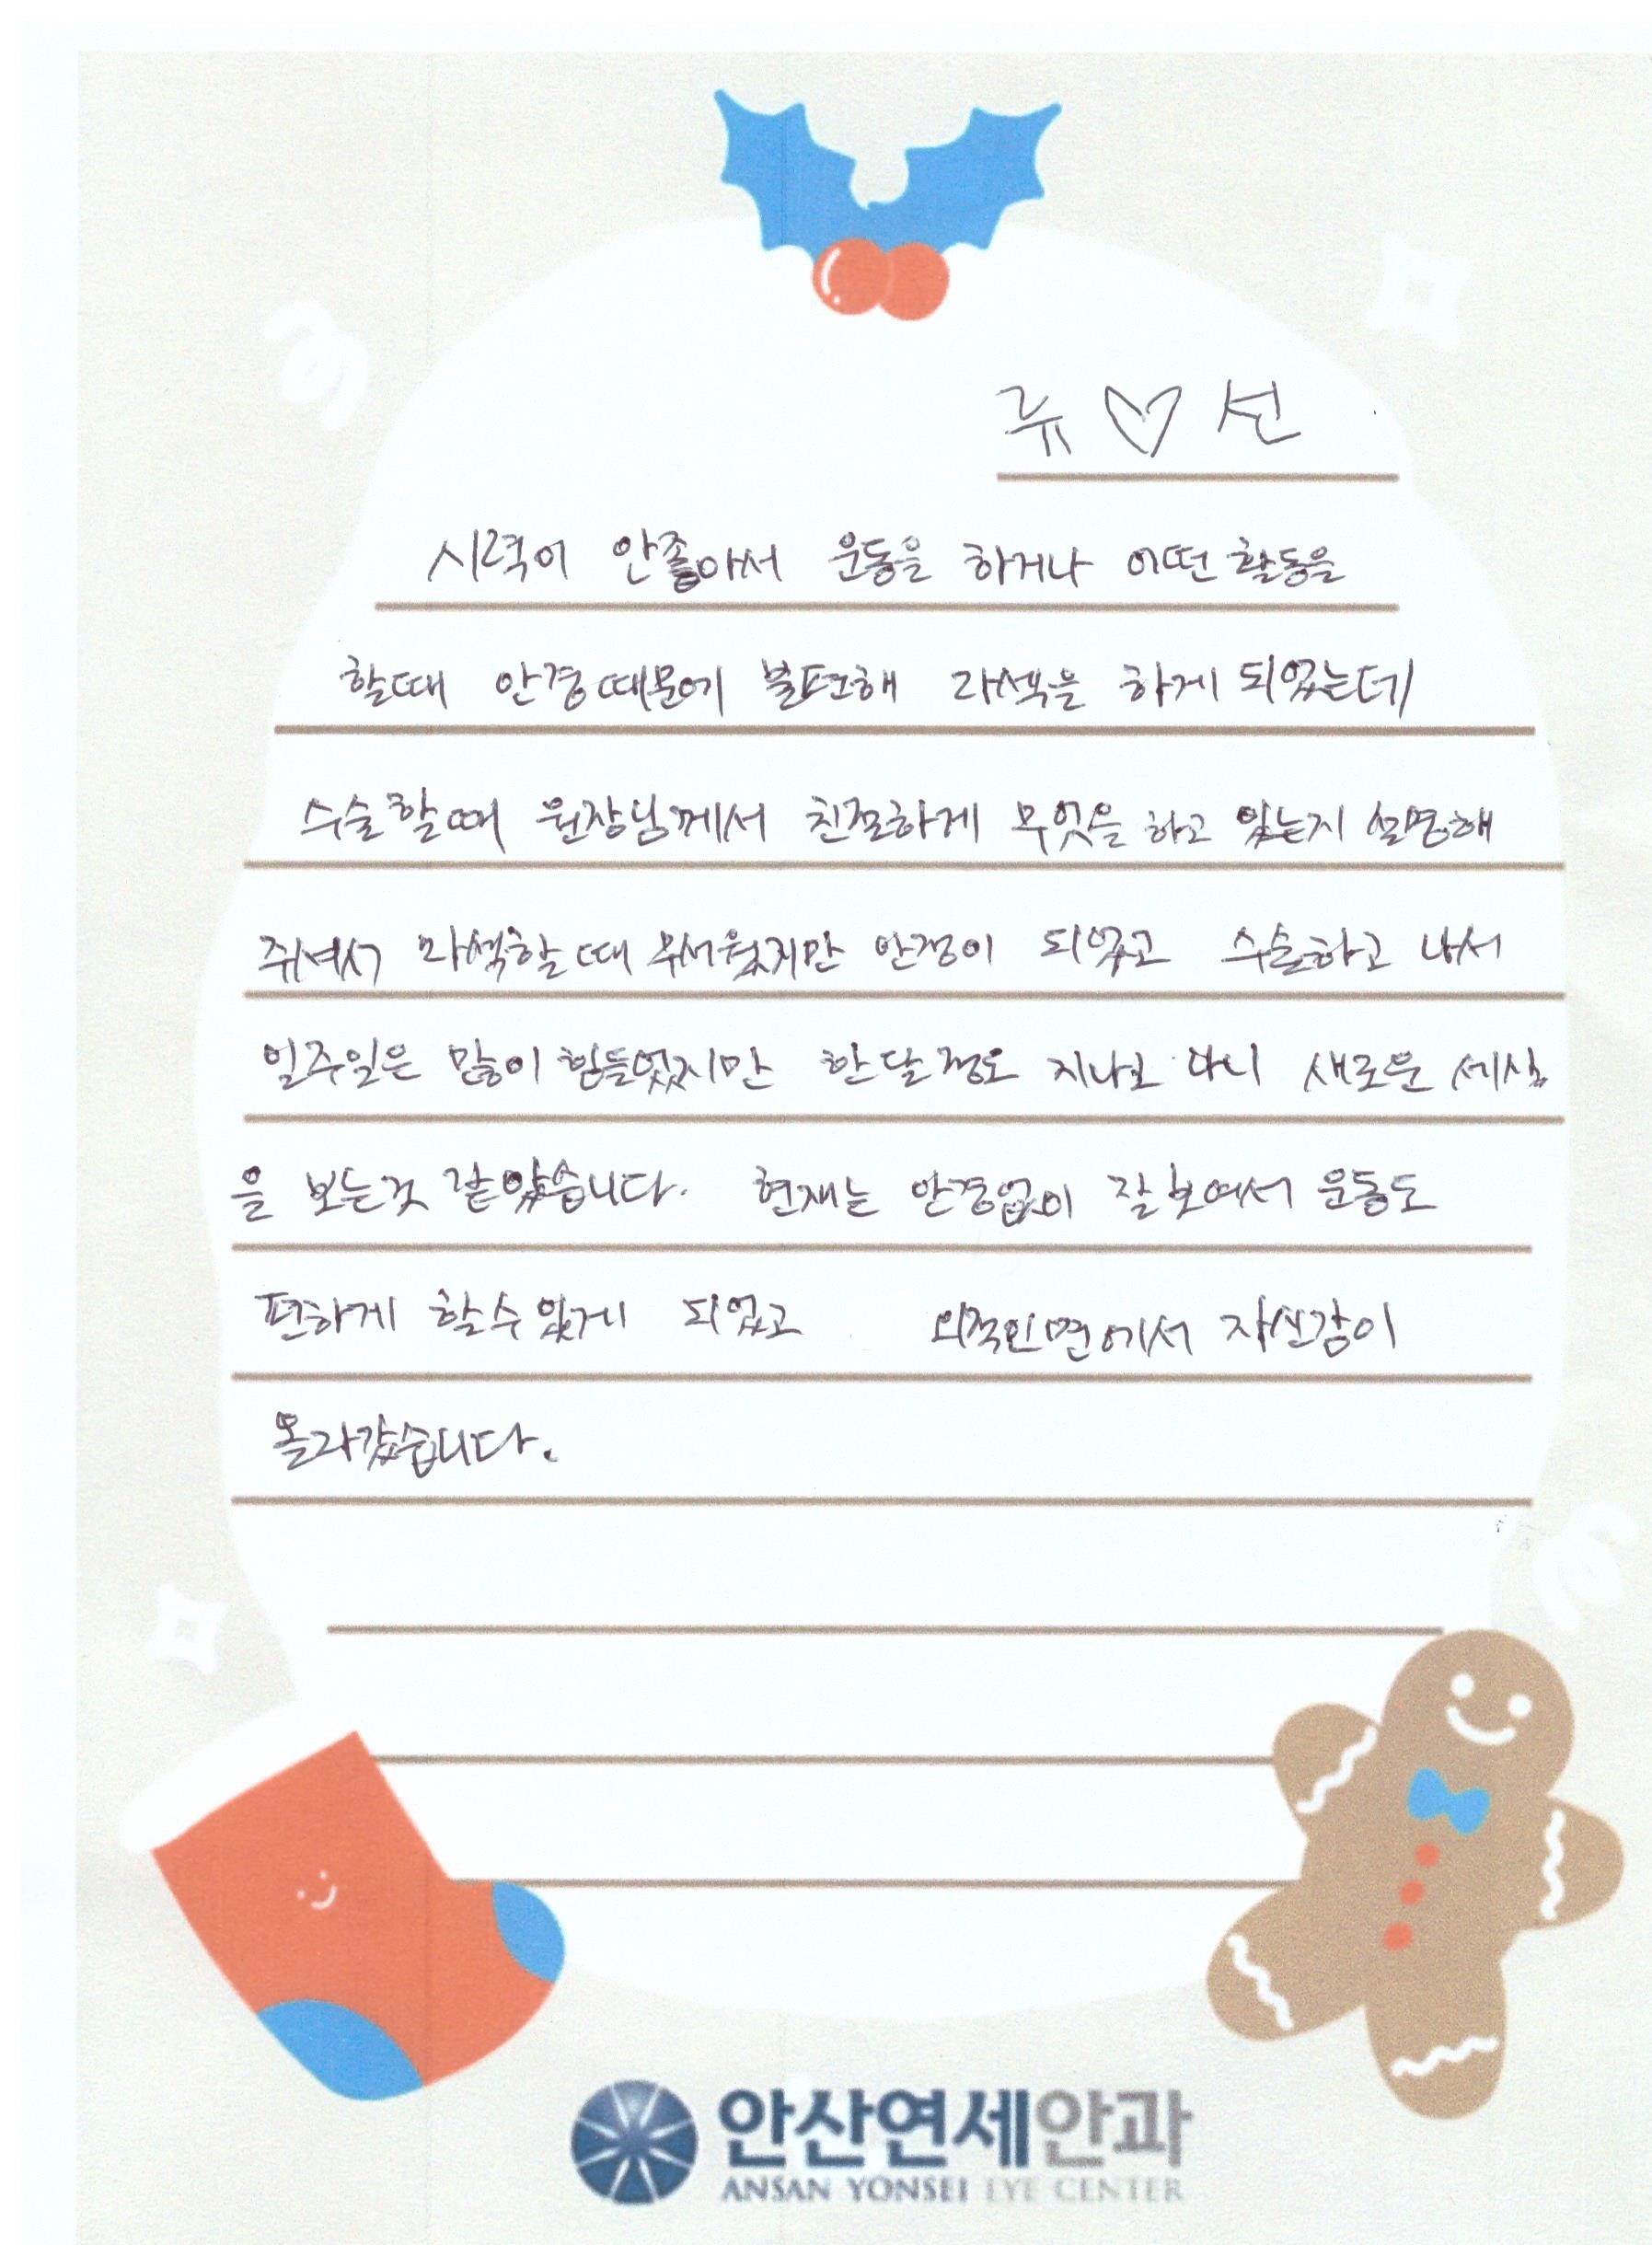 류♡선
시력이 안좋아서 운동을 하거나 어떤 활동을
할때 안경때문에 불편해 라색을 하게 되었는데
수술할때 원장님께서 친절하게 무엇을 하고 있는지 설명해
주셔서 라색할때 무서웠지만 안정이 되었고 수술하고 나서
일주일은 많이 힘들었지만 한달정도 지나보 나니 새로운 세상
을 보는것 같았습니다. 현재는 안경없이 잘보여서 운동도
편하게 할수있게 되었고 외적인면에서 자신감이
올라갔습니다.
안산연세안과
ANSAN YONSEI EYE CENTER